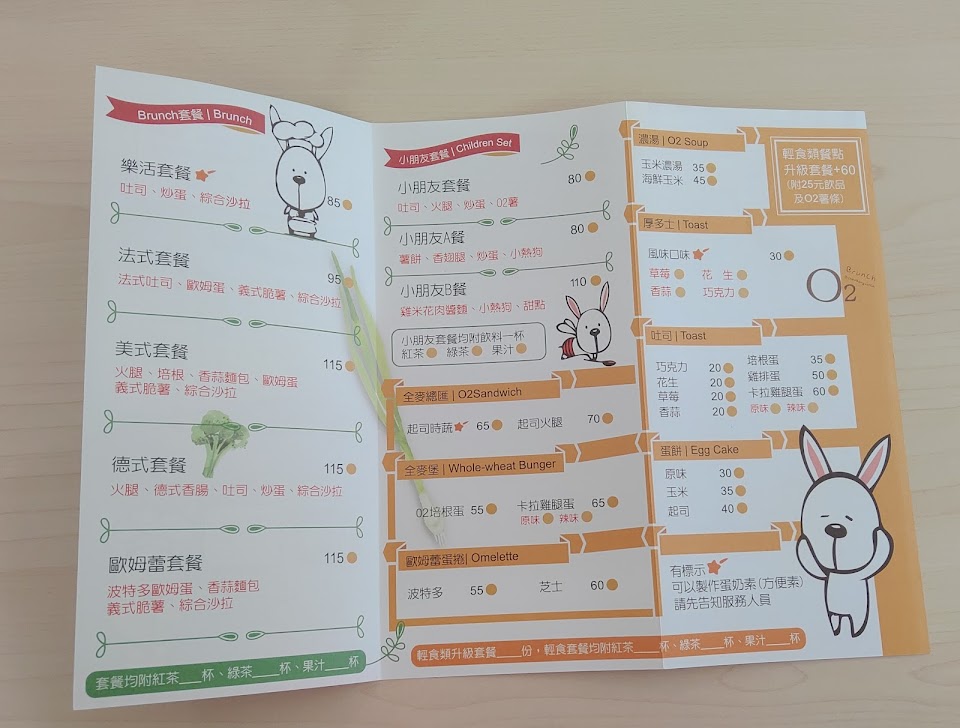 Brunch套餐 | Brunch
樂活套餐
吐司、炒蛋、綜合沙拉 85
法式套餐 95
法式吐司、歐姆蛋、義式脆薯、綜合沙拉
美式套餐 115
火腿、培根、香蒜麵包、歐姆蛋
義式脆薯、綜合沙拉
德式套餐 115
火腿、德式香腸、吐司、炒蛋、綜合沙拉
歐姆蕾套餐 115
波特多歐姆蛋、香蒜麵包
義式脆薯、綜合沙拉
套餐均附紅茶___杯、綠茶___杯、果汁___杯
小朋友套餐 | Children Set
小朋友套餐 80
吐司、火腿、炒蛋、O2薯
小朋友A餐 80
薯餅、香翅腿、炒蛋、小熱狗
小朋友B餐 110
雞米花肉醬麵、小熱狗、甜點
小朋友套餐均附飲料一杯
紅茶 綠茶 果汁
全麥總匯 | O2Sandwich
起司時蔬 65 起司火腿 70
全麥堡 | Whole-wheat Bunger
O2培根蛋 55 卡拉雞腿蛋 65
原味 辣味
歐姆蕾蛋捲| Omelette
波特多 55 芝士 60
濃湯 | O2 Soup
玉米濃湯 35
海鮮玉米 45
輕食類餐點
升級套餐+60
(附25元飲品
及O2薯條)
厚多士 | Toast
風味口味 30
草莓 花生
香蒜 巧克力
O2
Brunch
吐司 | Toast
巧克力 20 培根蛋 35
花生 20 雞排蛋 50
草莓 20 卡拉雞腿蛋 60
香蒜 20 原味 辣味
蛋餅 | Egg Cake
原味 30
玉米 35
起司 40
有標示
可以製作蛋奶素(方便素)
請先告知服務人員
輕食類升級套餐___份，輕食套餐均附紅茶___杯、綠茶___杯、果汁___杯